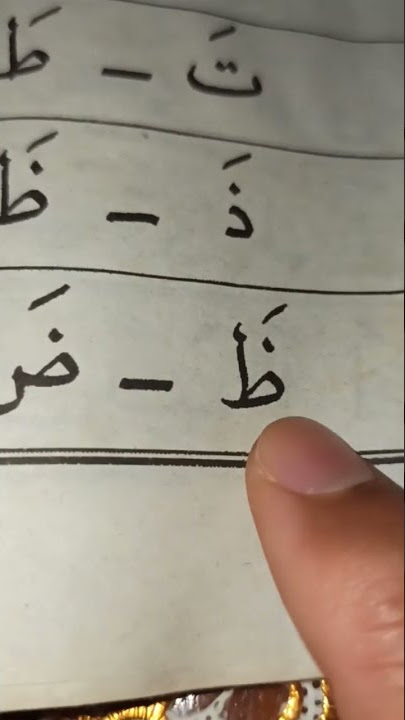 تَ - طَ
ذَ - ظَ
ظَ - ضَ